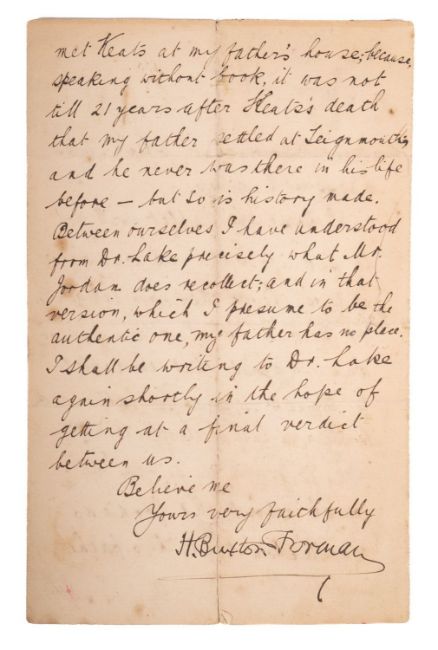 met Keats at my father's house; because,
speaking without book, it was not
till 21 years after Keats's death
that my father settled at Teignmouth,
and he never was there in his life
before — but so is history made.
Between ourselves I have understood
from Dr. Lake precisely what Mr.
Jordan does recollect; and in that
version, which I presume to be the
authentic one, my father has no place.
I shall be writing to Dr. Lake
again shortly in the hope of
getting at a final verdict
between us.
Believe me
Yours very faithfully
H. Buxton Forman